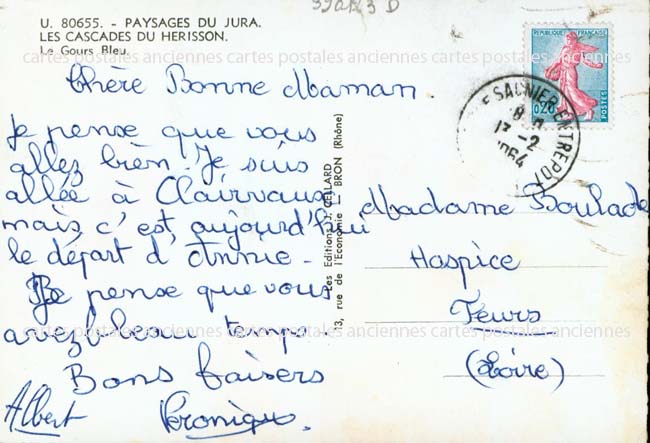 390A3 D
U. 80655. - PAYSAGES DU JURA.
LES CASCADES DU HERISSON.
Le Gours Bleu.
cartes postales anciennes cartes postales anciennes cartes postales anciennes
Chère Bonne Maman.
Je pense que vous
allez bien! Je suis
allée à Clairvaux
mais c'est aujourd'hui
le départ d'Annie -
Je pense que vous
avez beau temps.
Bons baisers
Albert Véronique.
Les Editions J. CELLARD
13, rue de l'Economie - BRON (Rhône)
REPUBLIQUE FRANÇAISE
0,20
POSTES
SAUNIER ENTREPOT
13 - 2
1964
Madame Boulade
Hospice
Feurs
(Loire)
cartes postales anciennes cartes postales anciennes cartes postales anciennes